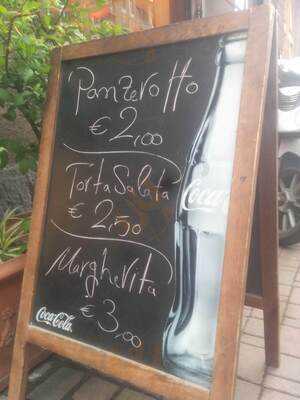 Panzerotto
€ 2,00
Torta Salata
€ 2,50
Margherita
€ 3,00
Coca-Cola
Coca-Cola